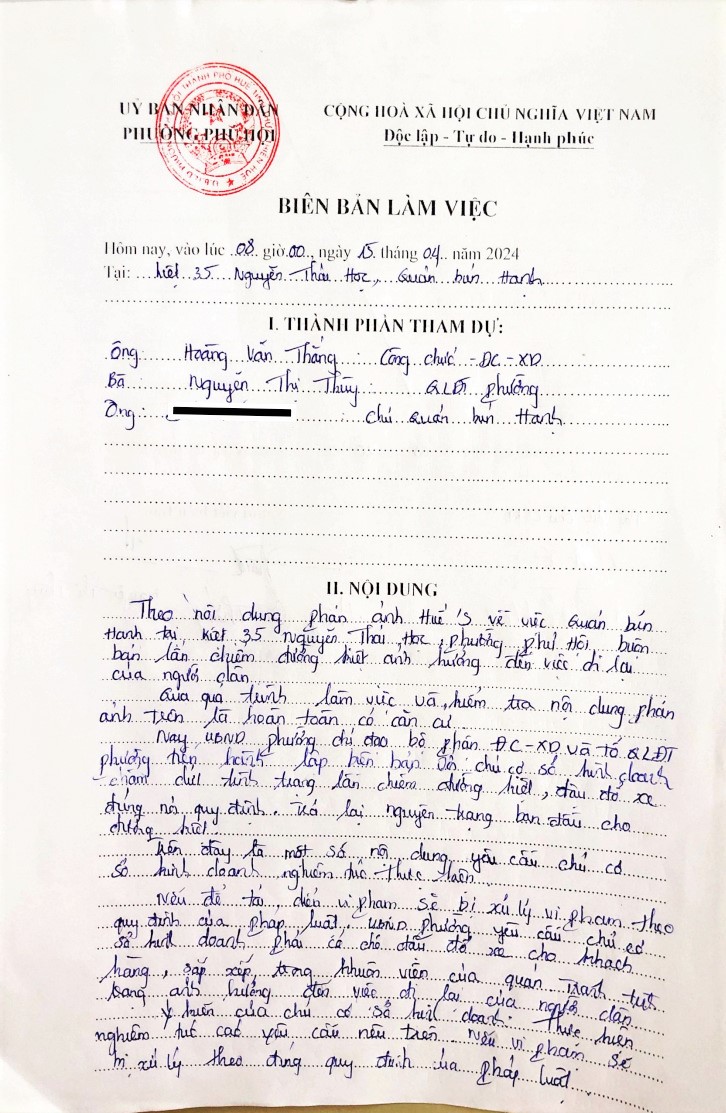 UỶ BAN NHÂN DÂN
PHƯỜNG PHÚ HỘI
CỘNG HOÀ XÃ HỘI CHỦ NGHĨA VIỆT NAM
Độc lập - Tự do - Hạnh phúc
BIÊN BẢN LÀM VIỆC
Hôm nay, vào lúc 08 giờ 00, ngày 15 tháng 04 năm 2024
Tại: kiệt 35 Nguyễn Thái Học, Quán bún Hạnh
I. THÀNH PHẦN THAM DỰ:
Ông: Hoàng Văn Thắng: Công chức - ĐC - XD
Bà Nguyễn Thị Thùy: QLĐT phường
Ông: : Chủ quán bún Hạnh
II. NỘI DUNG
Theo nội dung phản ánh Huế S về việc quán bún
Hạnh tại kiệt 35 Nguyễn Thái Học, phường phú Hội, buôn
bán lấn chiếm đường kiệt ảnh hưởng đến việc đi lại
của người dân
Qua quá trình làm việc và kiểm tra nội dung phản
ánh trên là hoàn toàn có căn cứ
Nay UBND phường chỉ đạo bộ phận ĐC-XD và tổ QLĐT
phường tiến hành lập biên bản chủ cơ sở kinh doanh
chấm dứt tình trạng lấn chiếm đường kiệt, đậu đỗ xe
đúng nơi quy định. Trả lại nguyên trạng ban đầu cho
đường kiệt.
Trên đây là một số nội dung yêu cầu chủ cơ
sở kinh doanh nghiêm túc thực hiện.
Nếu để tái diễn vi phạm sẽ bị xử lý vi phạm theo
quy định của pháp luật. UBND phường yêu cầu chủ cơ
sở kinh doanh phải có chỗ đậu đỗ xe cho khách
hàng, sắp xếp trong khuôn viên của quán tránh tình
trạng ảnh hưởng đến việc đi lại của người dân
Ý kiến của chủ cơ sở kinh doanh: Thực hiện
nghiêm túc các yêu cầu nêu trên. Nếu vi phạm sẽ
bị xử lý theo đúng quy định của pháp luật